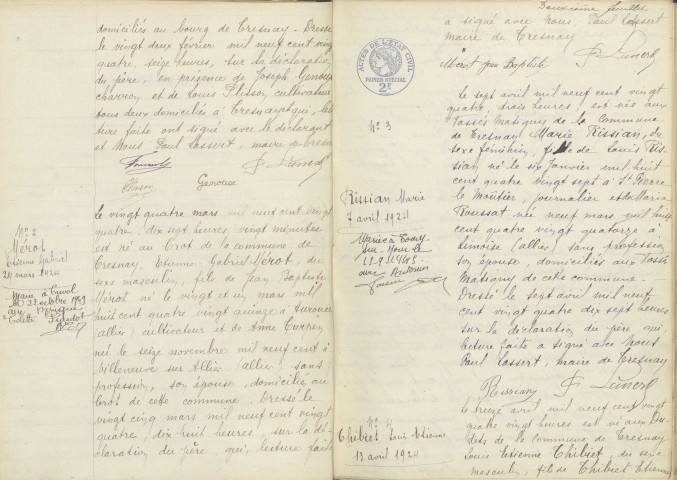 domiciliés au bourg de Tresnay. Dressé
le vingt deux février mil neuf cent vingt
quatre, seize heures, sur la déclaration
du père, en présence de Joseph Genoux
charron et de Louis Flisson, cultivateur
tous deux domiciliés à Tresnay qui, lec
ture faite ont signé avec le déclarant
et Nous Paul Lassert, maire de Tresnay
Genoux
N° 2
Mérot
Etienne Gabriel
24 mars 1924
Marié à
le 22 octobre 1949
avec
Colette
Le vingt quatre mars mil neuf cent vingt
quatre, dix sept heures vingt minutes
est né au Crot de la commune de
Tresnay Etienne Gabriel Mérot, du
sexe masculin, fils de Jean Baptiste
Mérot né le vingt et un mars mil
huit cent quatre vingt quinze à
(allier) cultivateur et de Anne
née le seize novembre mil neuf cent à
Villeneuve sur Allier (allier) sans
profession, son épouse, domiciliés au
Crot de cette commune. Dressé le
vingt cinq mars mil neuf cent vingt
quatre, dix huit heures, sur la dé-
claration du père, qui, lecture faite
feuillet
a signé avec Nous, Paul Lassert
maire de Tresnay
Mérot Jean Baptiste
ACTES DE L'ETAT CIVIL
PAPIER SPECIAL
2F
N° 3
Rissian Marie
7 avril 1924
Mariée à
avec
Le sept avril mil neuf cent vingt
quatre, trois heures, est née aux
Fossés Matigny de la commune
de Tresnay Marie Rissian, du
sexe féminin, fille de Louis Ris-
sian né le six janvier mil huit
cent quatre vingt sept à St Pierre
le Moûtier, journalier et de Maria
Roussat née neuf mars mil huit
cent quatre vingt quatorze à
Limoise (allier) sans profession
son épouse, domiciliés aux Fossés
Matigny de cette commune.
Dressé le sept avril mil neuf
cent vingt quatre dix sept heures
sur la déclaration du père qui,
lecture faite a signé avec Nous
Paul Lassert, maire de Tresnay
Rissian
N° 4
Thibiet Louis Etienne
13 avril 1924
Le treize avril mil neuf cent vingt
quatre vingt heures est né aux
de la commune de Tresnay
Louis Etienne Thibiet, du sexe
masculin, fils de Thibiet Etienne